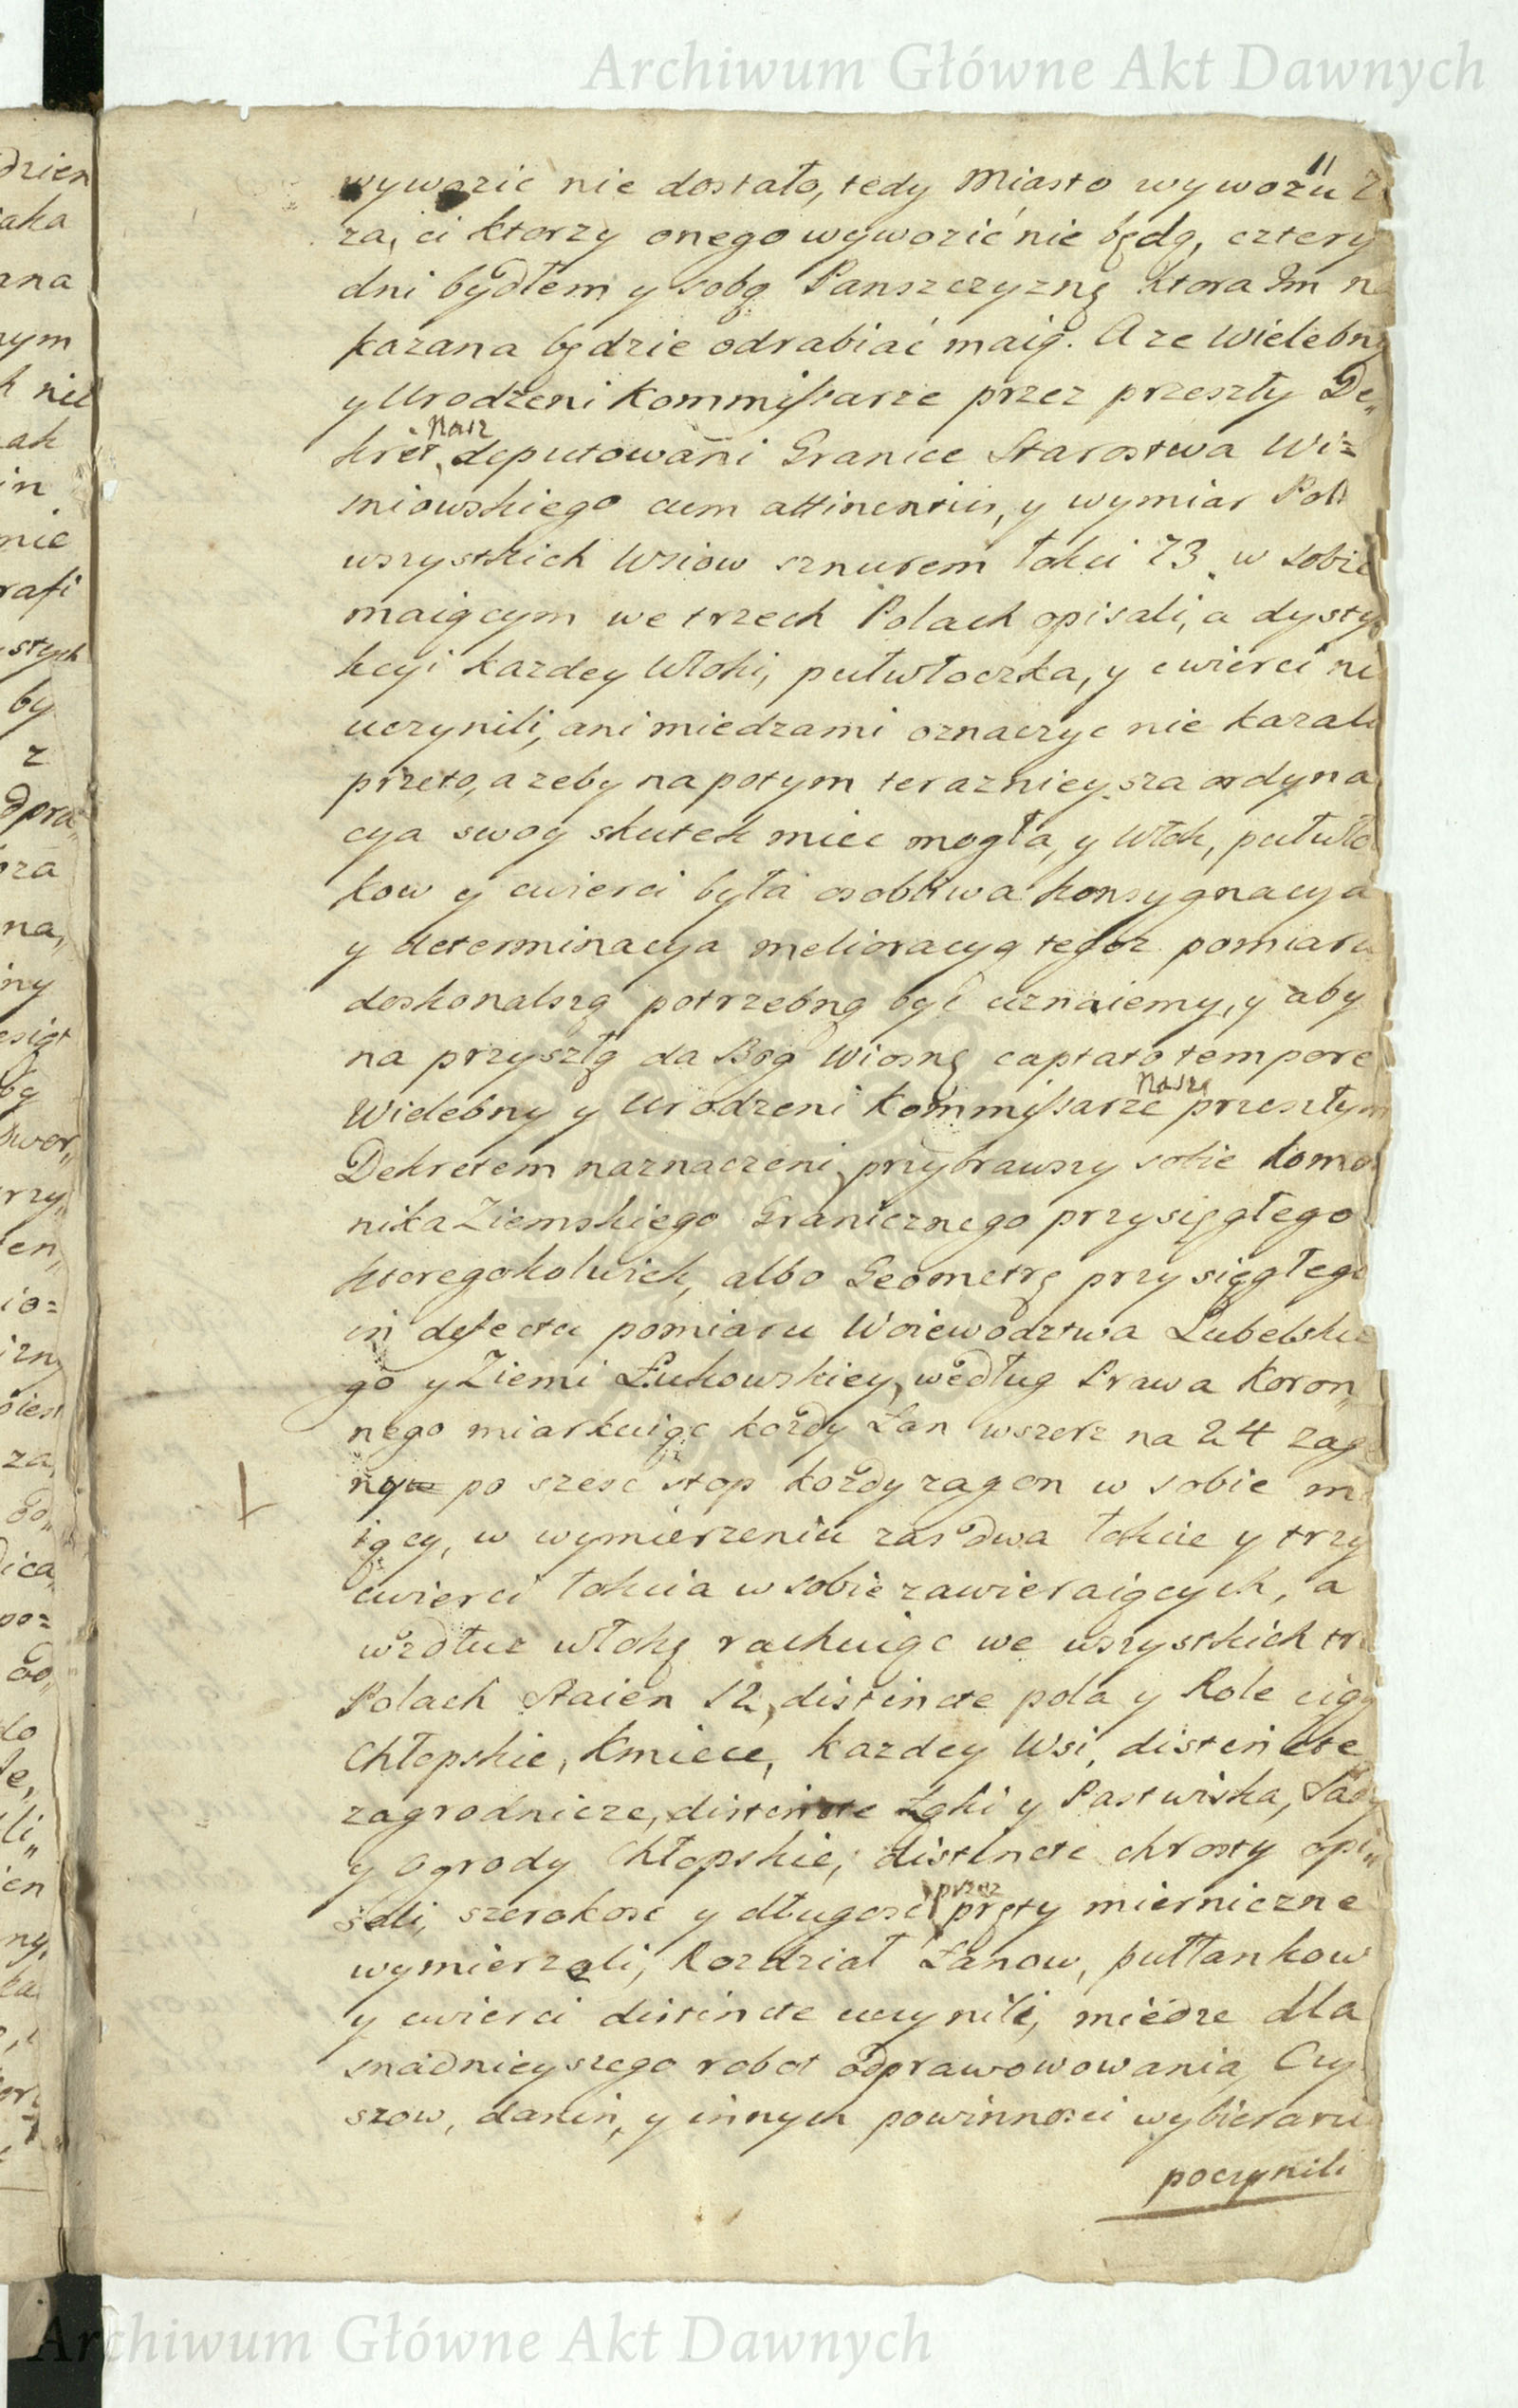 Archiwum Główne Akt Dawnych
11
wywozic nie dostało, tedy Miasto wywozu
za, ci ktorzy onego wywozić nie będą, cztery
dni bydłem y sobą Panszczyznę ktora Im na
kazana będzie odrabiać maią. A ze Wielebny
y Urodzeni Kommissarze przez przeszły De„
Nasz
kret deputowani Granice Starostwa Wi=
sniowskiego cum attinentiis, y wymiar Pol
wszystkich Wsiow sznurem łokci 73 w sobie
maiącym we trzech Polach opisali, a dysty
kcyi kazdey Włoki, pułwłoczka, y cwierci nie
uczynili, ani miedzami oznaczyc nie kazali
przeto, azeby napotym teraznieysza ordyna
cya swoy skutek miec mogła, y Włok, pułwło
kow y cwierci była osobliwa konsygnacya
y determinacya melioracyą tegoz pomiaru
doskonalszą potrzebną być uznaiemy, y aby
na przyszłą da Bog Wiosnę captato tempore
Nasze
Wielebny y Urodzeni Kommissarze przeszłym
Dekretem naznaczeni, przybrawszy sobie Komor
nika Ziemskiego Granicznego przysięgłego
ktoregokolwiek, albo Geometrę przysięgłego
in defectu pomiaru Woiewodztwa Lubelskie
go y Ziemi Łukowskiey, według Prawa Koron„
nego miarkuiąc kozdy Łan wszerz na 24 zago
ny po szesc stop kozdy zagon w sobie ma
iący, w wymierzeniu zas dwa łokcie y trzy
cwierci łokcia w sobie zawieraiących, a
wzdłuz włokę rachuiąc we wszystkich trz
Polach Staien 12, distincte pola y Role
Chłopskie, Kmiece, kazdey Wsi, distincte
zagrodnicze, distincte Łąki y Pastwiska, Sady
y Ogrody Chłopskie, distincte chrosty opi„
przez
sali, szerokosc y długosc pręty miernicze
wymierzali, Rozdział Łanow, pułłankow
y cwierci distincte uczynili, miedze dla
snadnieyszego robot odprawowowania, Czy
szow, danin, y innych powinnosci wybierania
poczynili
Archiwum Główne Akt Dawnych